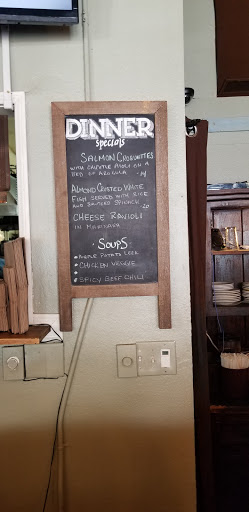 DINNER
specials
SALMON CROQUETTES
WITH CHIPOTLE AIOLI ON A
BED OF ARUGULA -14
ALMOND CRUSTED WHITE
FISH SERVED WITH RICE
AND SAUTEED SPINACH -20
CHEESE RAVIOLI
IN MARINARA
· SOUPS ·
POTATO LEEK
CHICKEN VEGGIE
SPICY BEEF CHILI